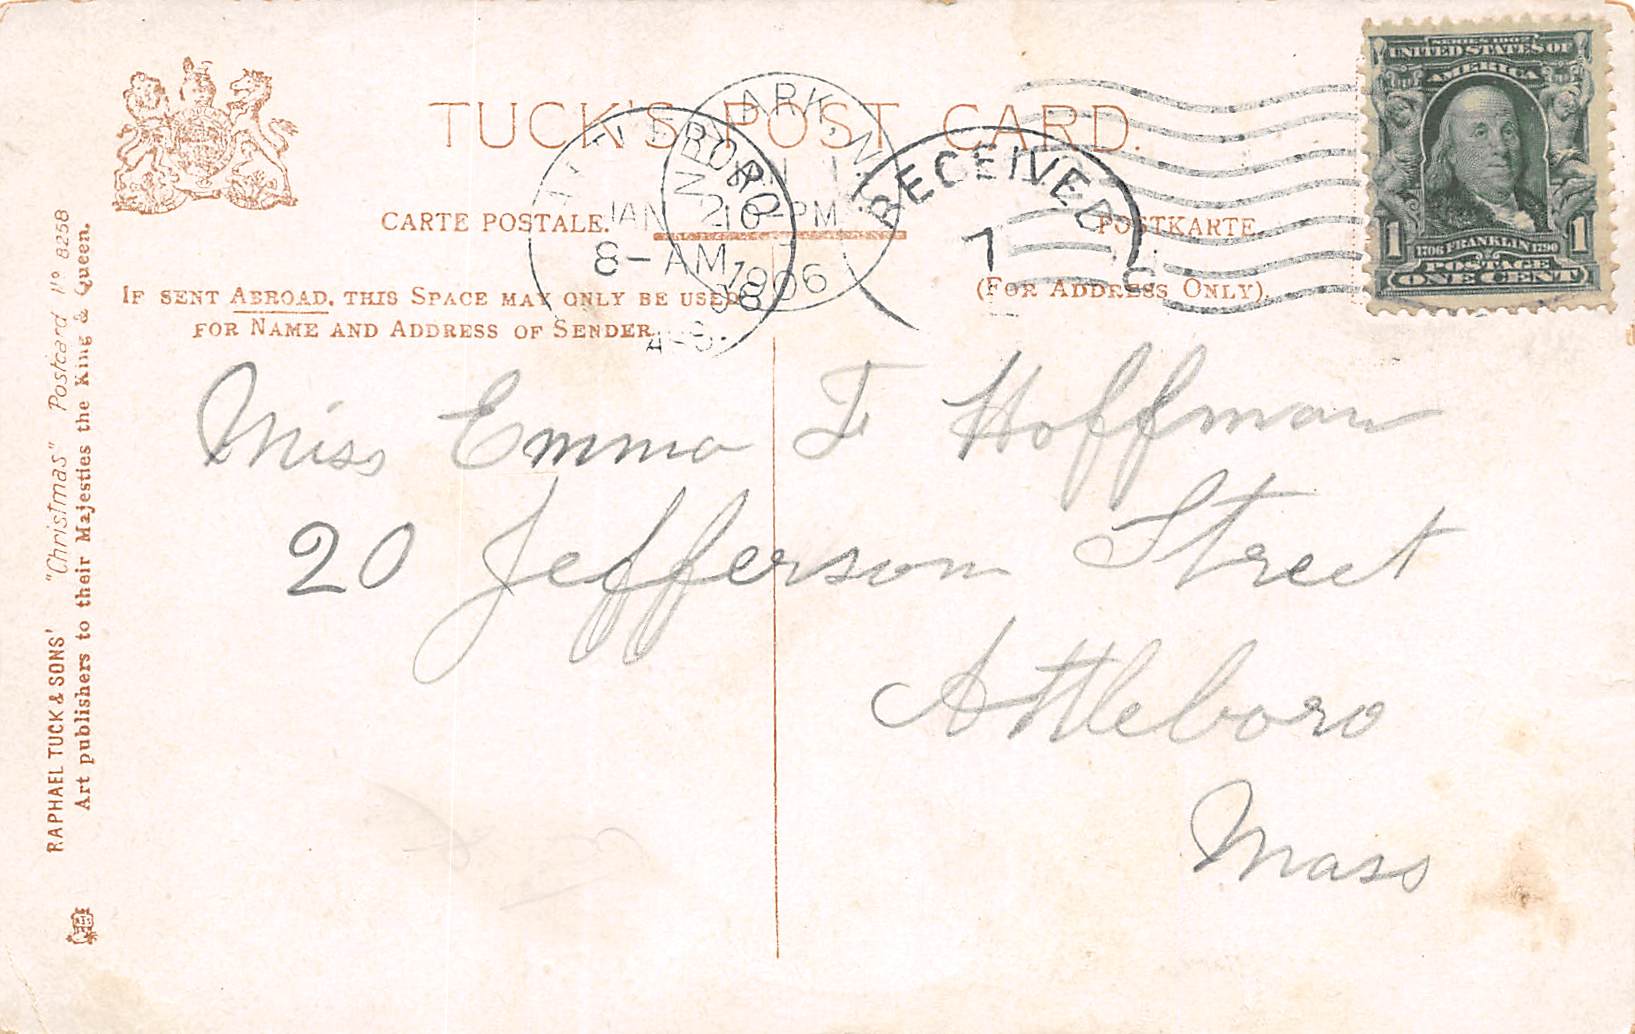 TUCK'S POST CARD.
CARTE POSTALE.
POSTKARTE.
IF SENT ABROAD, THIS SPACE MAY ONLY BE USED
FOR NAME AND ADDRESS OF SENDER.
(FOR ADDRESS ONLY).
RECEIVED
7
JAN 2
8-AM
6-PM
1906
SERIES 1902
UNITED STATES OF
AMERICA
1 1706 FRANKLIN 1790 1
POSTAGE
ONE CENT
Miss Emma F Hoffman
20 Jefferson Street
Attleboro
Mass
RAPHAEL TUCK & SONS' "Christmas" Postcard Nº 8258
Art publishers to their Majesties the King & Queen.